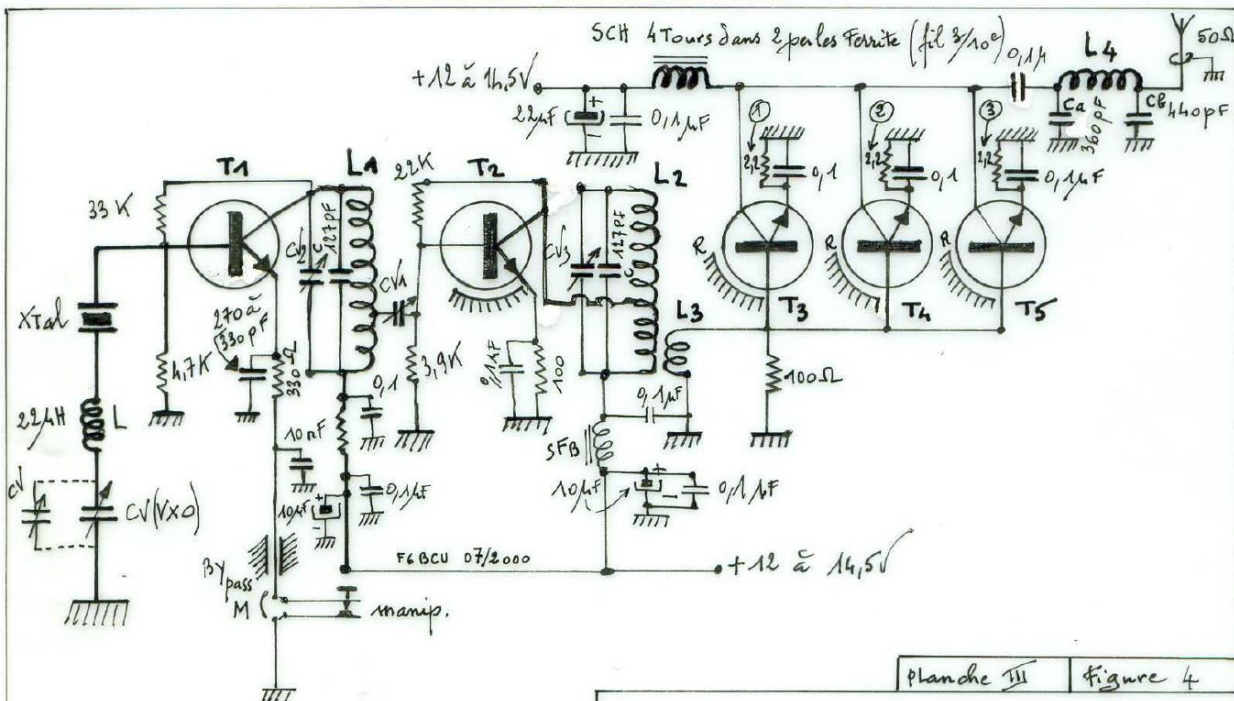 SCH 4 Tours dans 2 perles Ferrite (fil 3/10e)
+12 à 14,5V
22µF
+
-
0,1µF
0,1µ
L4
50Ω
Ca
360pF
Cb
440pF
1
2,2
0,1
2
2,2
0,1
3
2,2
0,1µF
T1
L1
22K
T2
L2
33K
CV2
C
127pF
CV1
CV3
127pF
C
R
R
R
L3
T3
T4
T5
XTal
270 à
330pF
4,7K
330Ω
0,1
3,9K
0,1µF
100
0,1µF
100Ω
22µH
L
10nF
SFB
CV
CV(VXO)
10µF
+
-
0,1µF
10µF
+
-
0,1µF
F6BCU 07/2000
+12 à 14,5V
BYpass
M
manip.
planche III
Figure 4